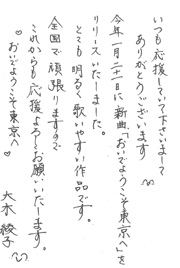 いつも応援していて下さいまして
ありがとうございます
今年一月二十一日に新曲「おいでようこそ東京へ」を
リリースいたしました。
とても明るく歌いやすい作品です。
全国で頑張りますので
これからも応援よろしくお願いいたします。
♡おいでようこそ東京へ♡
大木綾子